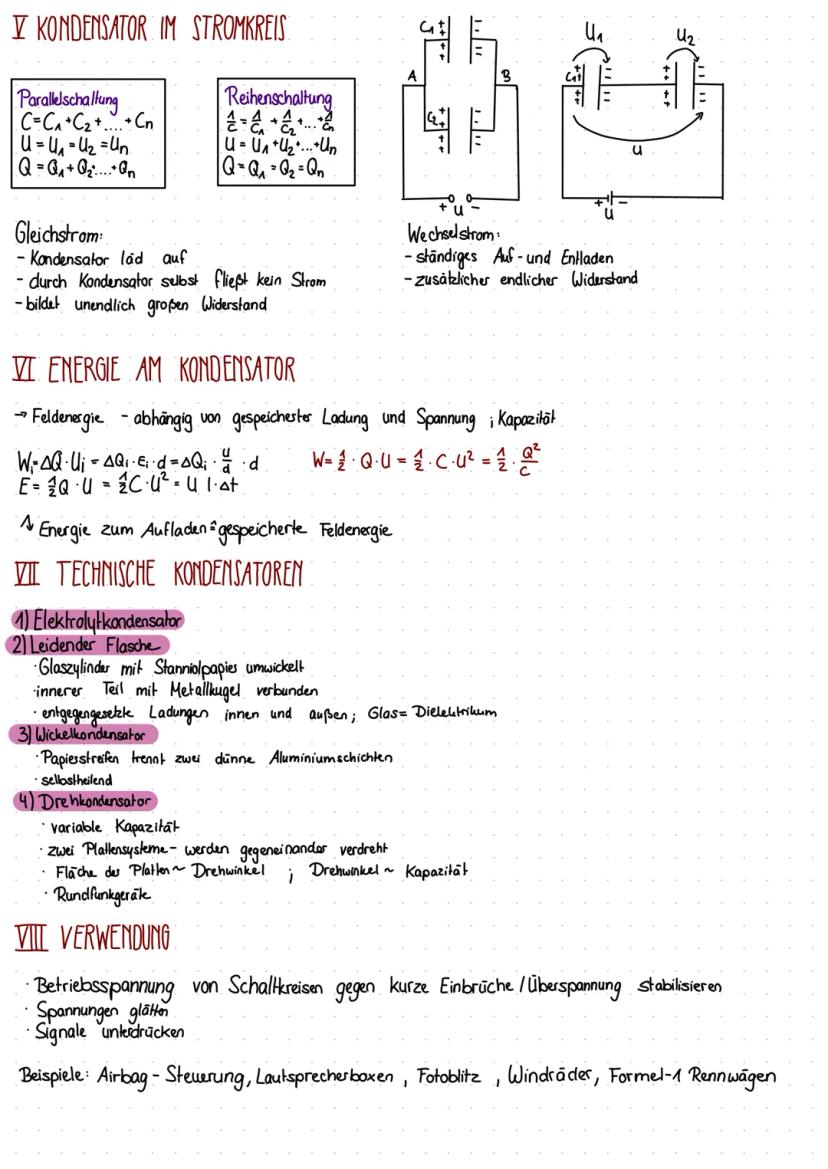 V KONDENSATOR IM STROMKREIS
Parallelschaltung
C = C₁ + C₂ + .... + Cn
U = U₁ = U₂ = Un
Q = Q₁ + Q₂ + ... + Qn
Reihenschaltung
1/C = 1/C₁ + 1/C₂ + ... + 1/Cn
U = U₁ + U₂ + ... + Un
Q = Q₁ = Q₂ = Qn
C₁
A
B
C₂
+ U -
U₁
U₂
C₁
U
+ U -
Gleichstrom:
- Kondensator läd auf
- durch Kondensator selbst fließt kein Strom
- bildet unendlich großen Widerstand
Wechselstrom:
- ständiges Auf- und Entladen
- zusätzlicher endlicher Widerstand
VI ENERGIE AM KONDENSATOR
→ Feldenergie - abhängig von gespeicherter Ladung und Spannung ; Kapazität
Wi = ΔQ · Ui = ΔQi · Ei · d = ΔQi · U/d · d
W = 1/2 · Q · U = 1/2 · C · U² = 1/2 · Q²/C
E = 1/2 Q · U = 1/2 C · U² = U I · Δt
↳ Energie zum Aufladen ≙ gespeicherte Feldenergie
VII TECHNISCHE KONDENSATOREN
1) Elektrolytkondensator
2) Leidender Flasche
· Glaszylinder mit Stanniolpapier umwickelt
· innerer Teil mit Metallkugel verbunden
· entgegengesetzte Ladungen innen und außen ; Glas = Dielektrikum
3) Wickelkondensator
· Papierstreifen trennt zwei dünne Aluminiumschichten
· selbstheilend
4) Drehkondensator
· variable Kapazität
· zwei Plattensysteme - werden gegeneinander verdreht
· Fläche der Platten ~ Drehwinkel ; Drehwinkel ~ Kapazität
· Rundfunkgeräte
VIII VERWENDUNG
· Betriebsspannung von Schaltkreisen gegen kurze Einbrüche / Überspannung stabilisieren
· Spannungen glätten
· Signale unterdrücken
Beispiele: Airbag - Steuerung, Lautsprecherboxen , Fotoblitz , Windräder, Formel-1 Rennwägen